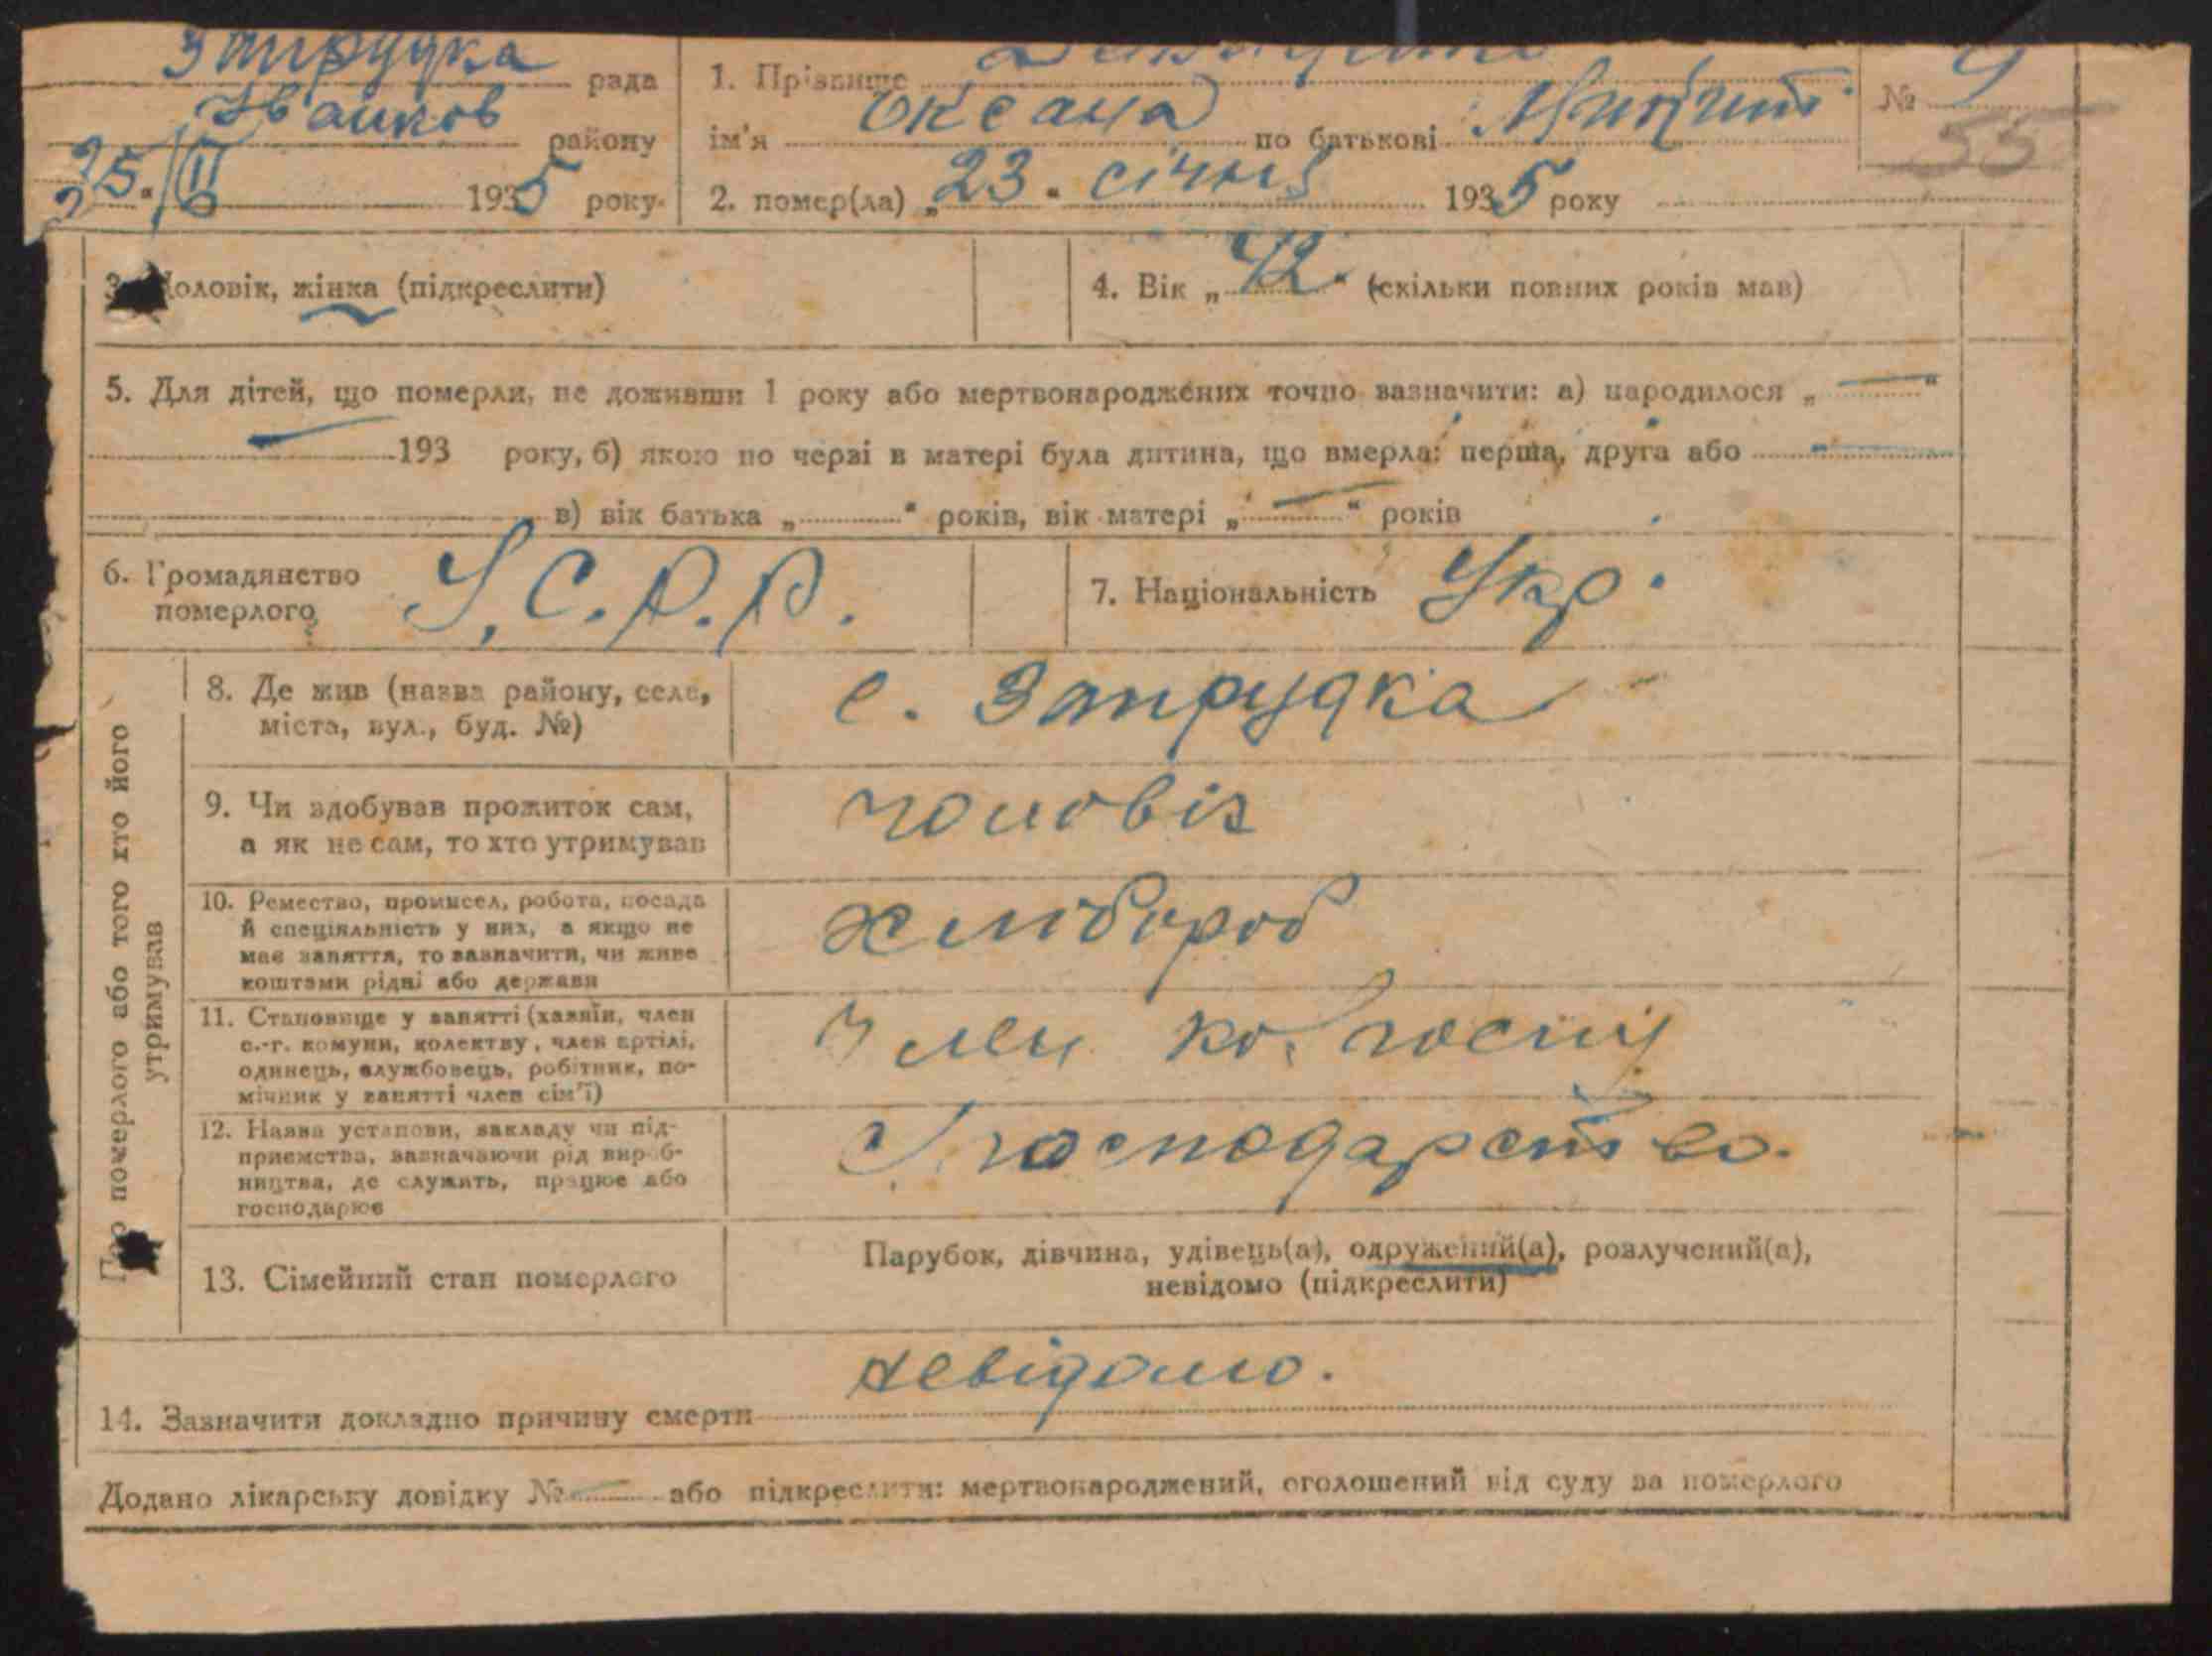 Запрудка рада
Іванков району
25 " II 1935 року
1. Прізвище
ім'я Оксана по батькові
№ 9
55
2. помер(ла) „23" січня 1935 року
3. Чоловік, жінка (підкреслити)
4. Вік „42" (скільки повних років мав)
5. Для дітей, що померли, не доживши 1 року або мертвонароджених точно вазначити: а) народилося „ — "
— 193 року, б) якою по черзі в матері була дитина, що вмерла: перша, друга або —
в) вік батька „ " років, вік матері „ — " років
6. Громадянство
померлого
У.С.Р.Р.
7. Національність Укр.
Про померлого або того хто його
утримував
8. Де жив (назва району, селе,
міста, вул., буд. №)
с. Запрудка
9. Чи здобував прожиток сам,
а як не сам, то хто утримував
чоловік
10. Ремество, промисел, робота, посада
й спеціяльність у них, а якщо не
має заняття, то вазначити, чи живе
коштами рідні або держави
хлібороб
11. Становище у занятті (хазяїн, член
с.-г. комуни, колектву, член артілі,
одинець, службовець, робітник, по-
мічник у занятті член сім'ї)
Член колгоспу
12. Назва установи, закладу чи під-
приємства, вазначаючи рід вироб-
ництва, де служить, працює або
господарює
С. господарство.
13. Сімейний стан померлого
Парубок, дівчина, удівець(а), одружений(а), розлучений(а),
невідомо (підкреслити)
14. Зазначити докладно причину смерти невідомо.
Додано лікарську довідку № — або підкреслити: мертвонароджений, оголошений від суду за померлого